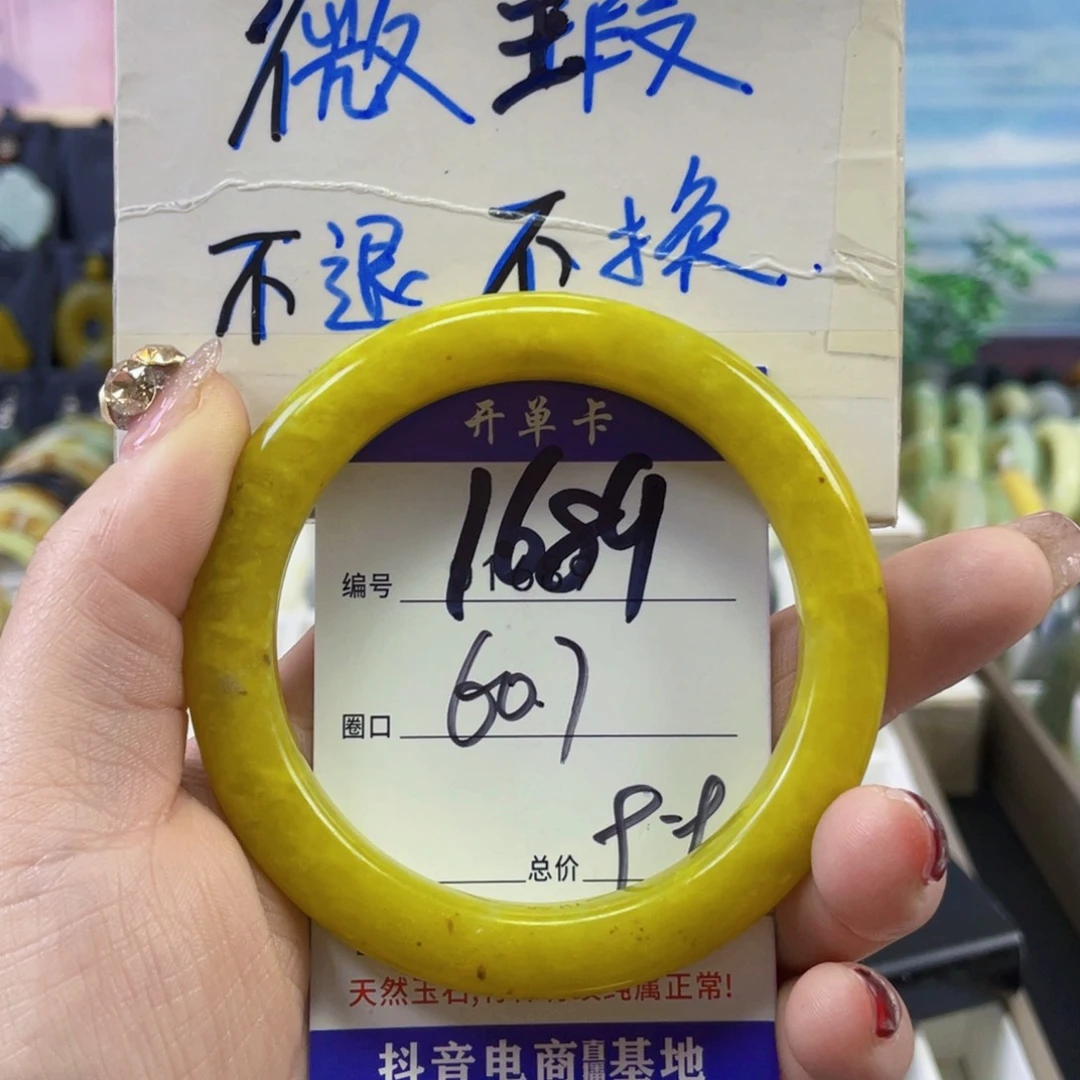 微瑕
不退不换..
开单卡
1689
编号
60.7
圈口
总价
天然玉石,
纯属正常!
抖音电商直播基地